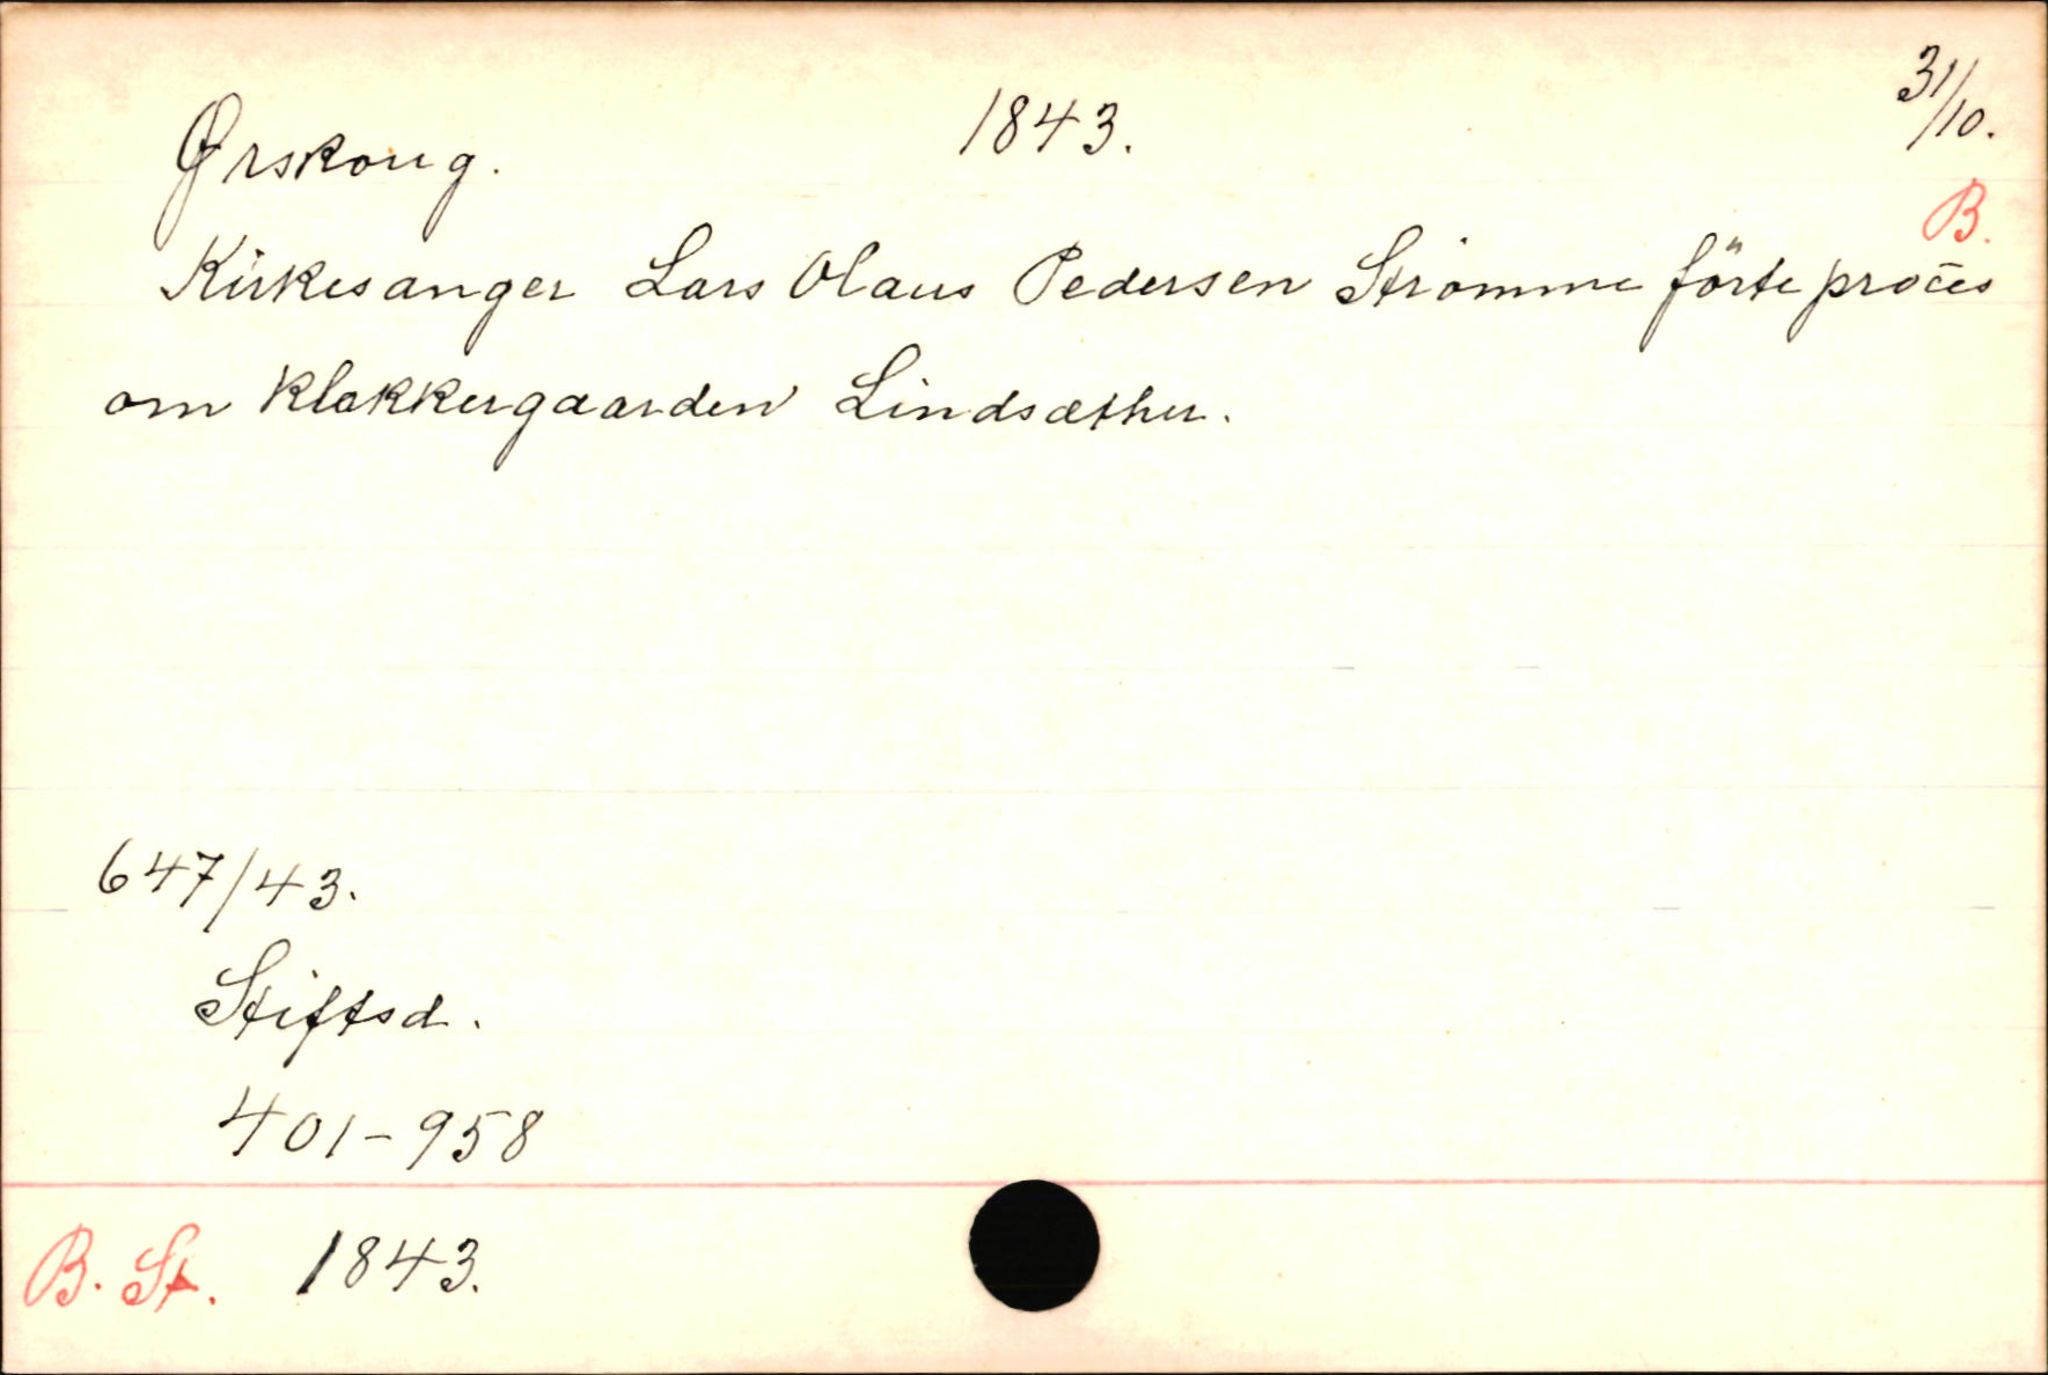 Ørskoug. 1843. 31/10.
B.
Kirkesanger Lars Olaus Pedersen Strömme förte proces
om klokkergaarden Lindsæther.
647/43.
Stiftsd.
401-958
B. St. 1843.